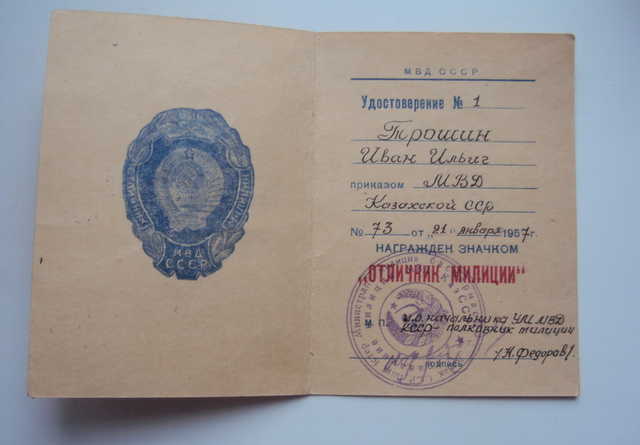 МВД
СССР
МВД СССР
Удостоверение № 1
Трошин
Иван Ильич
приказом МВД
Казахской ССР
№ 73 от „21" января 1957 г.
НАГРАЖДЕН ЗНАЧКОМ
„ОТЛИЧНИК МИЛИЦИИ"
М. П. И.о. начальника УМ МВД
КССР - полковник милиции
подпись /Н. Федоров/.